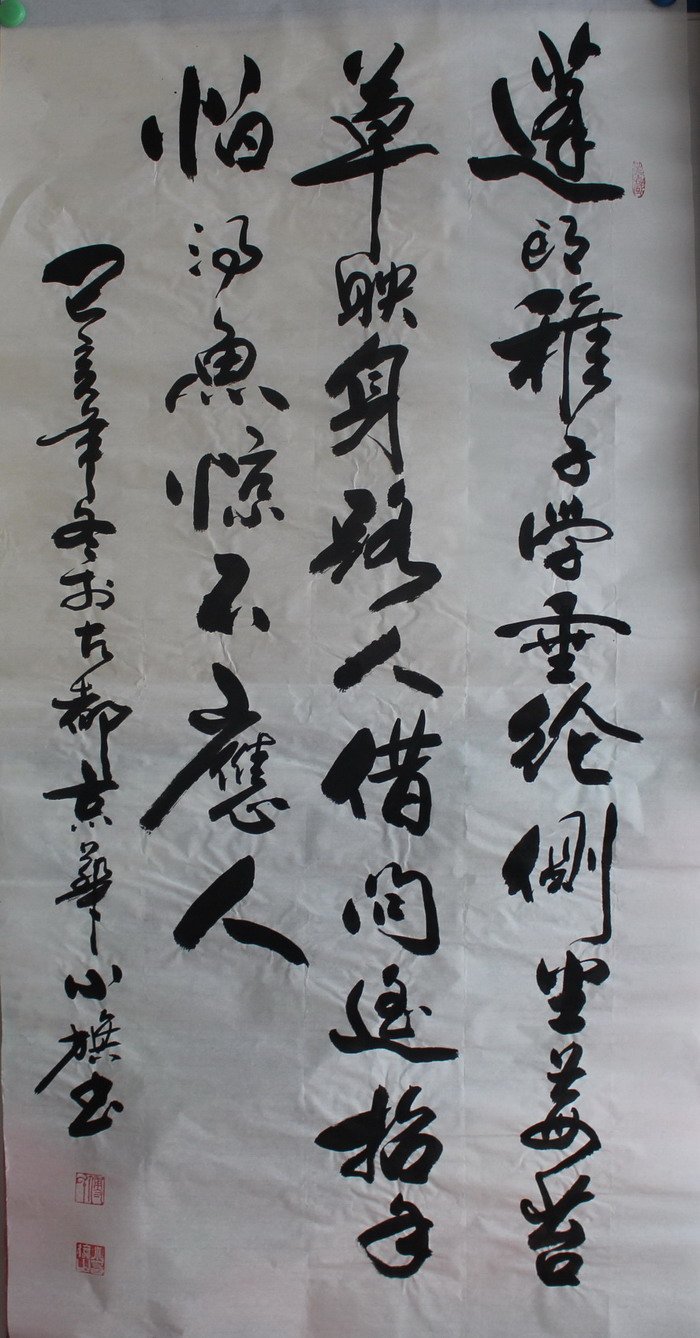 蓬头稚子學垂纶側坐莓苔
草映身路人借问遥招手
怕得魚惊不應人
己亥年冬於古都京華小旗书